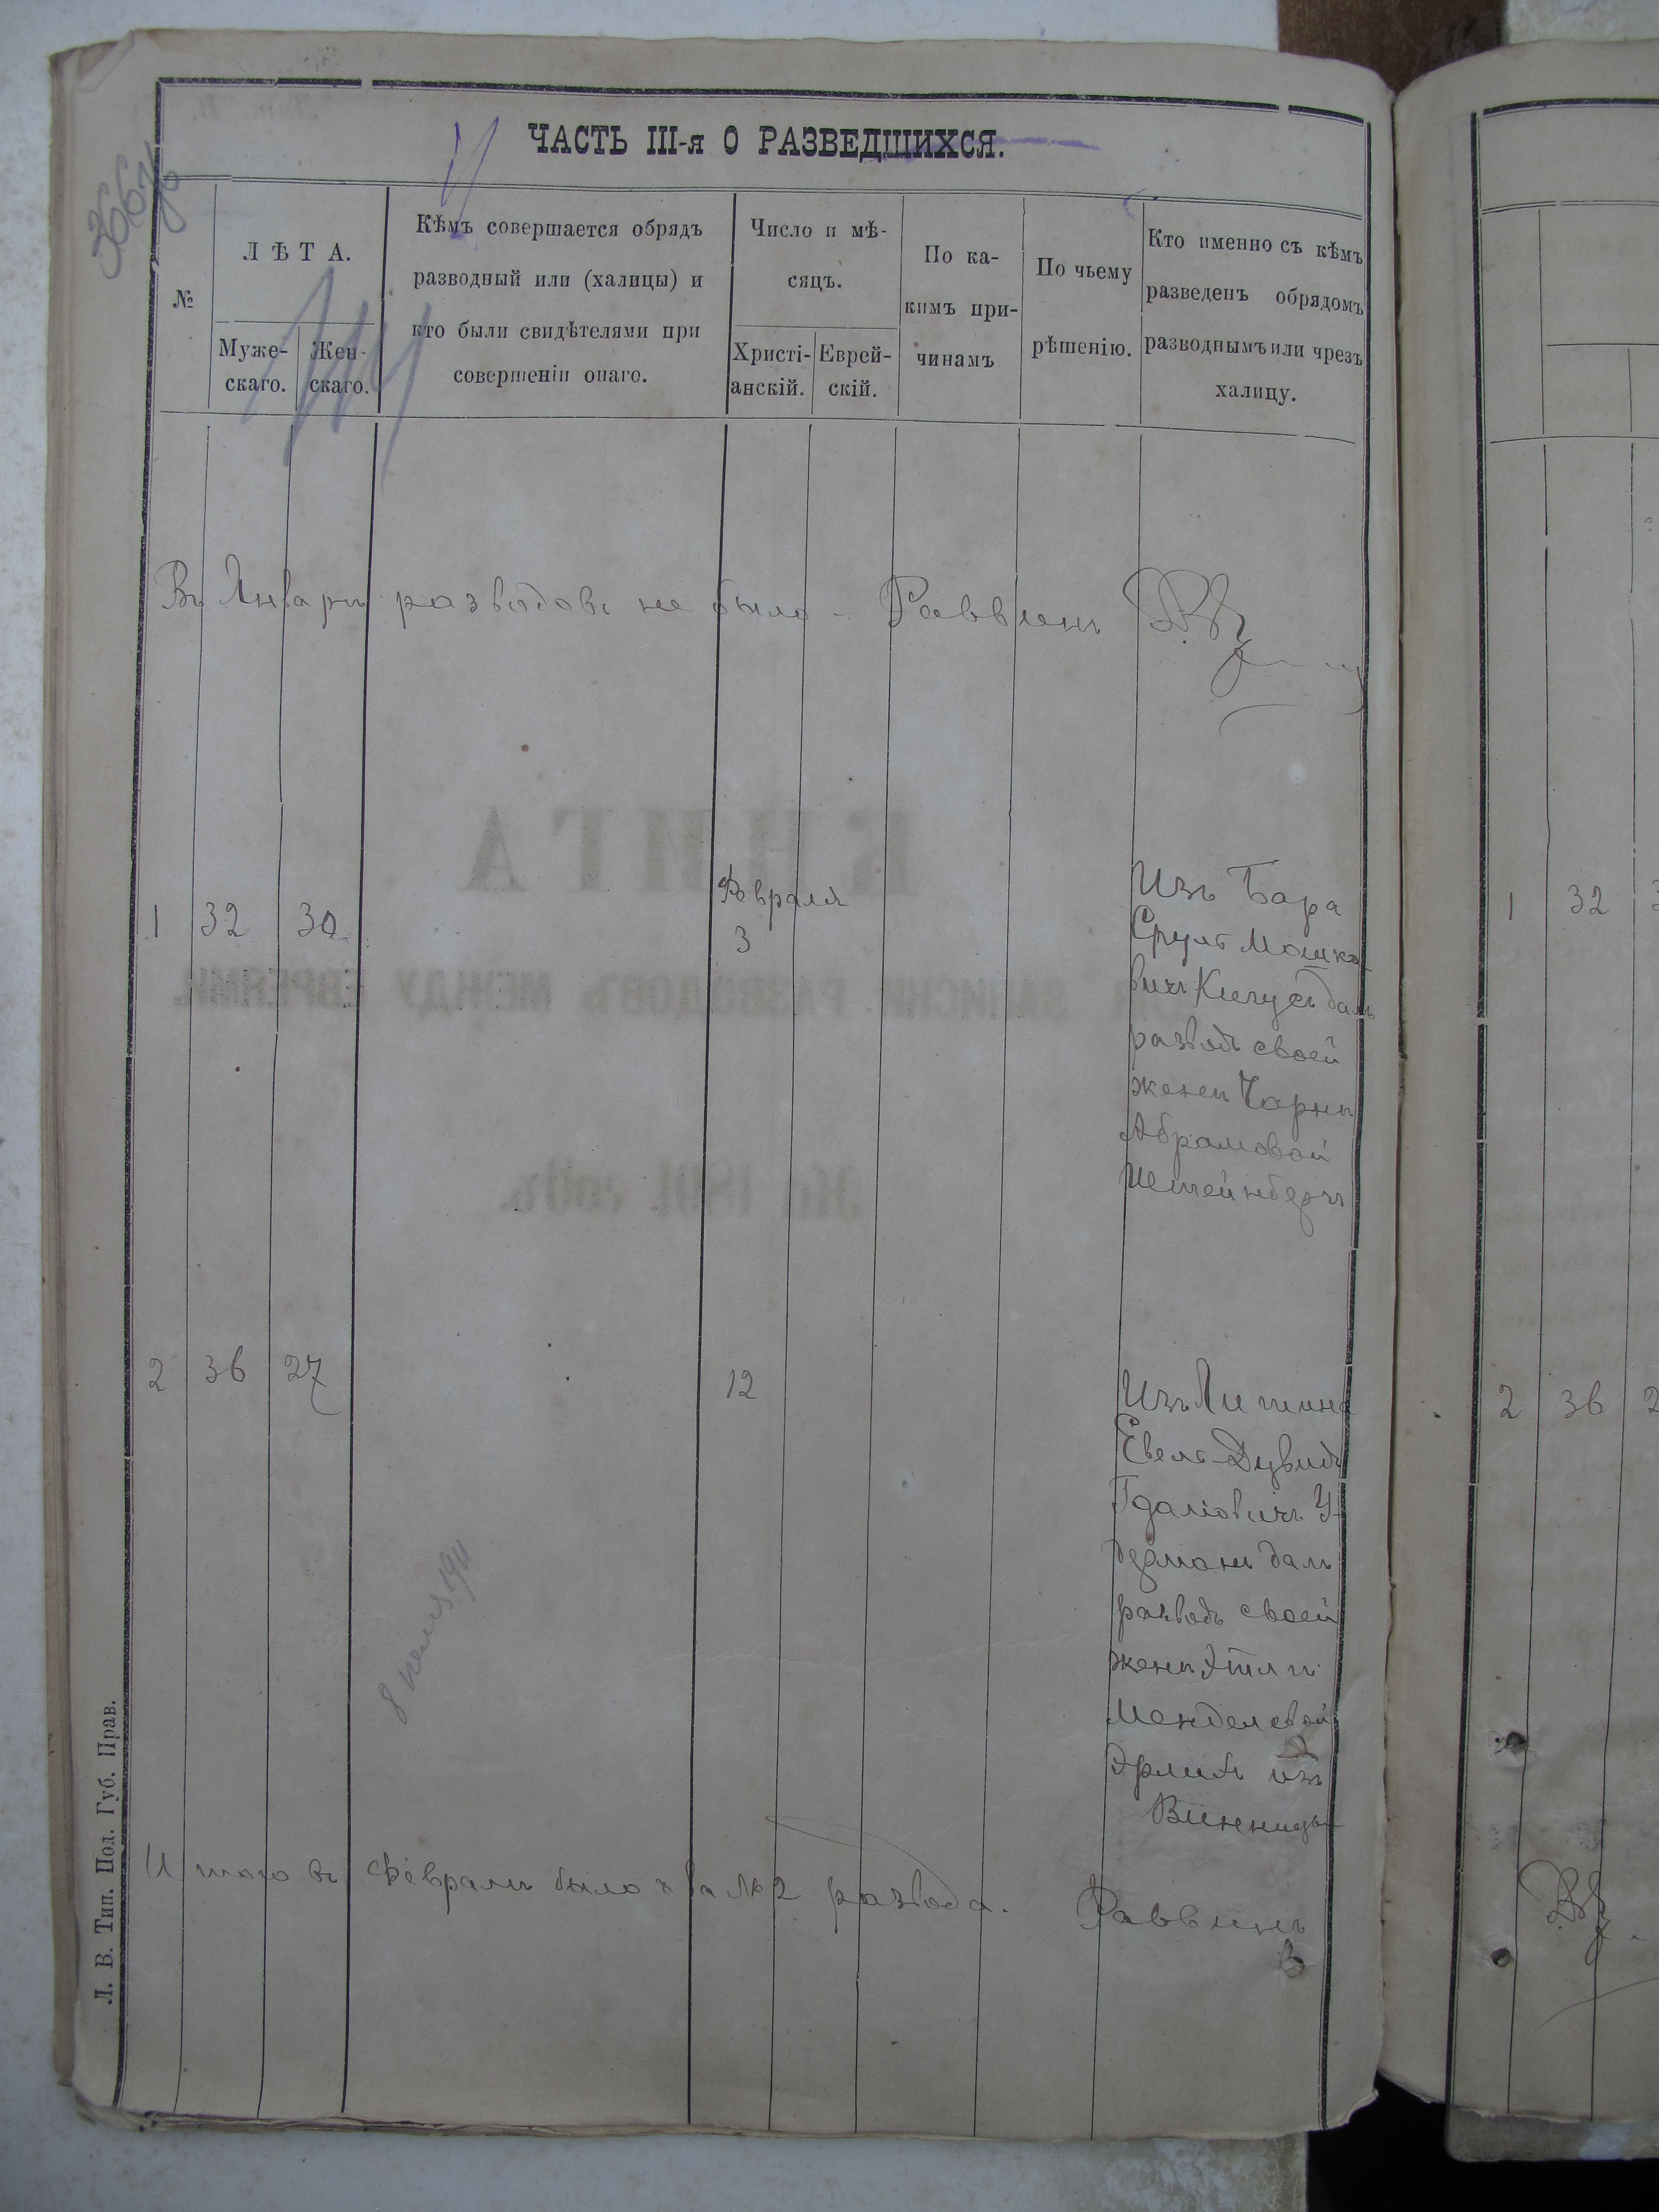 ЧАСТЬ III-я О РАЗВЕДШИХСЯ.
№
ЛѢТА.
Муже-
скаго.
Жен-
скаго.
Кѣмъ совершается обрядъ
разводный или (халицы) и
кто были свидѣтелями при
совершеніи онаго.
Число и мѣ-
сяцъ.
Христі-
анскій.
Еврей-
скій.
По ка-
кимъ при-
чинамъ
По чьему
рѣшенію.
Кто именно съ кѣмъ
разведенъ обрядомъ
разводнымъ или чрезъ
халицу.
Въ Январѣ разводовъ не было - Раввинъ
1 32 30
Февраля
3
Изъ Бара
Сруль Мошко-
вичъ далъ
разводъ своей
женѣ Чарнѣ
Абрамовой
Штейнбергъ
2 36 27
12
Изъ Литина
Евель-Дувидъ
Гдаліовичъ У-
дерманъ далъ
разводъ своей
женѣ Этлѣ
Менделевой
Эрлихъ изъ
Винницы
Итого въ Февралѣ было два № 2 развода. Раввинъ
Л. В. Тип. Под. Губ. Прав.
1 32
2 36